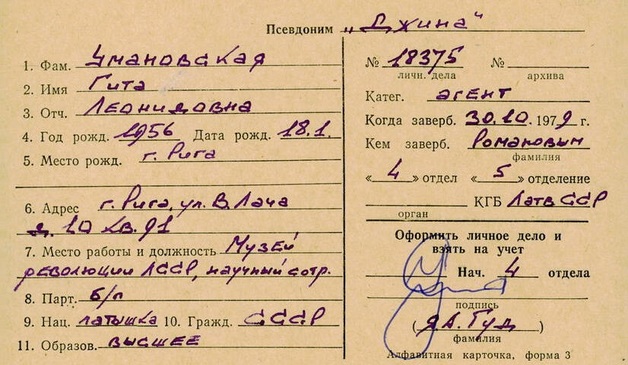 Псевдоним „Джина"
1. Фам. Умановская
2. Имя Гита
3. Отч. Леонидовна
4. Год рожд. 1956 Дата рожд. 18.1.
5. Место рожд. г. Рига
6. Адрес г. Рига, ул. В. Лача
д. 10 кв. 91
7. Место работы и должность Музей
революции ЛССР, научный сотр.
8. Парт. б/п
9. Нац. латышка 10. Гражд. СССР
11. Образов. высшее
№ 18375 №
личн. дела архива
Катег. агент
Когда заверб. 30.10.1979 г.
Кем заверб. Романовым
фамилия
«4» отдел «5» отделение
КГБ Латв ССР
орган
Оформить личное дело и
взять на учет
Нач. 4 отдела
подпись
(Я.А. Гуд)
фамилия
Алфавитная карточка, форма 3